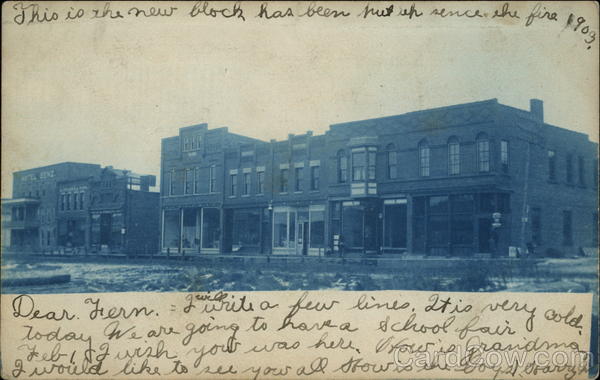 This is the new block has been put up sence the fire 1903.
HOTEL BENZ
Dear Fern. I will write a few lines. It is very cold.
today We are going to have a School fair
Feb, 18 I wish yow was here. How is Grandma
I would like to see yow all How is the Boys Harry
CardCow.com